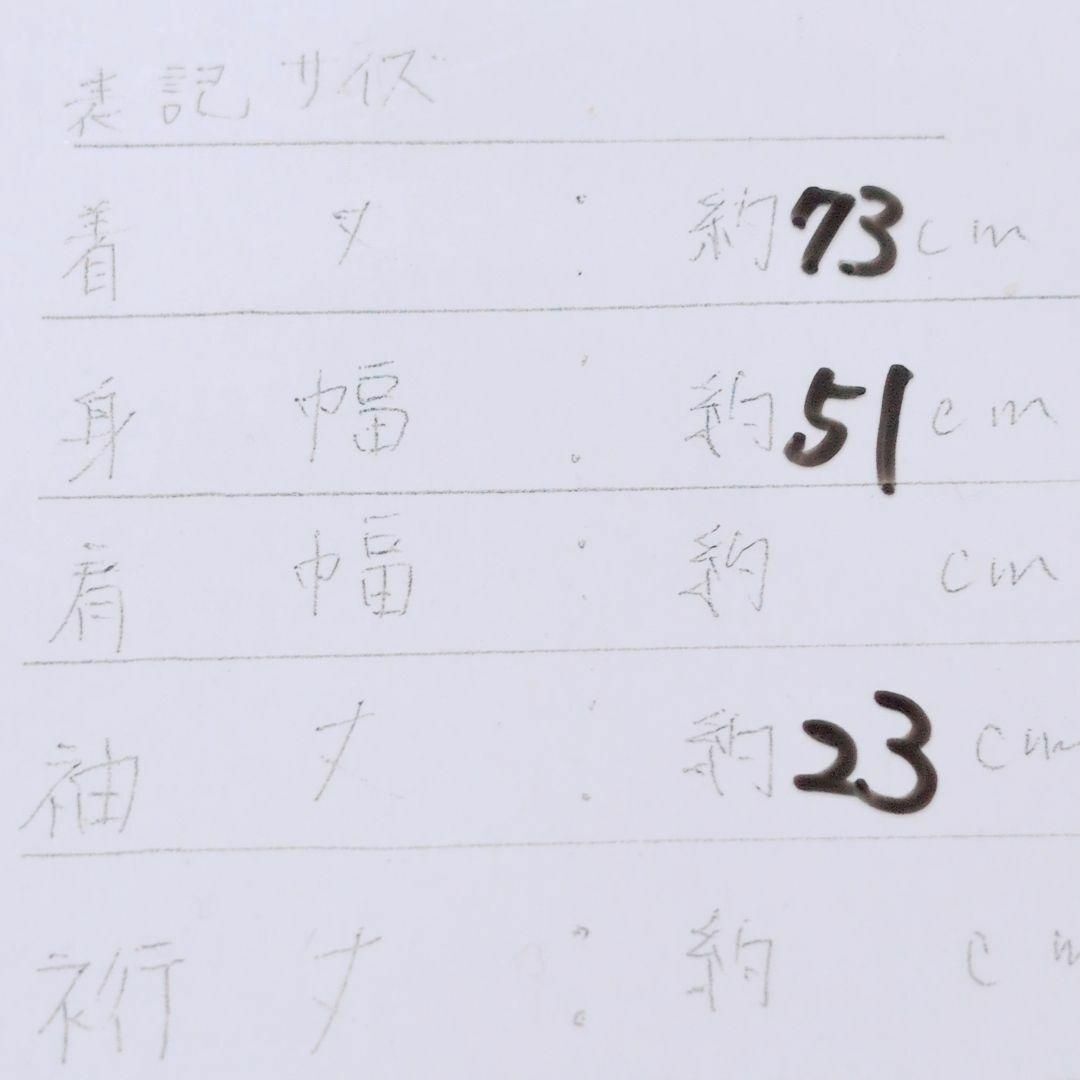 表記サイズ
着 丈 : 約73cm
身 幅 : 約51cm
肩 幅 : 約 cm
袖 丈 : 約23cm
裄 丈 : 約 cm